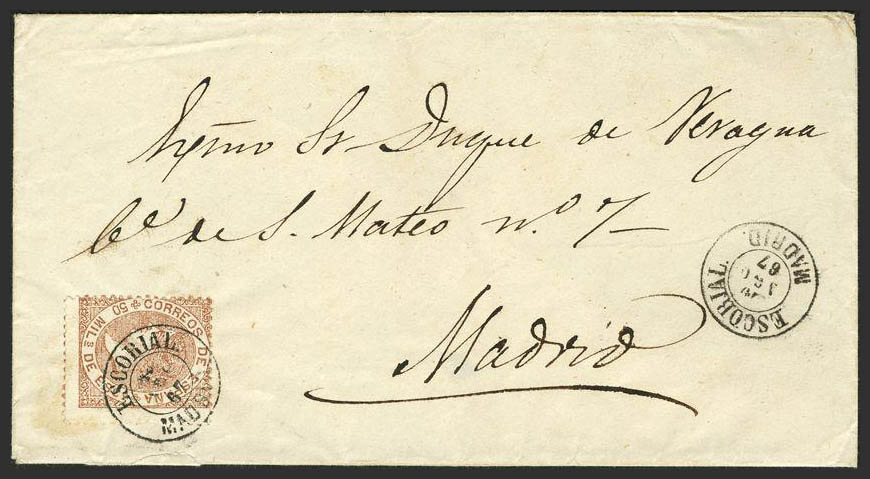 Exc͠mo Sr Duque de Veragua
Ce de S. Mateo n.º 7
Madrid
ESCORIAL.
67
MADRID
CORREOS DE ESPAÑA
50 MIL.s DE
ESCORIAL.
67
MADRID